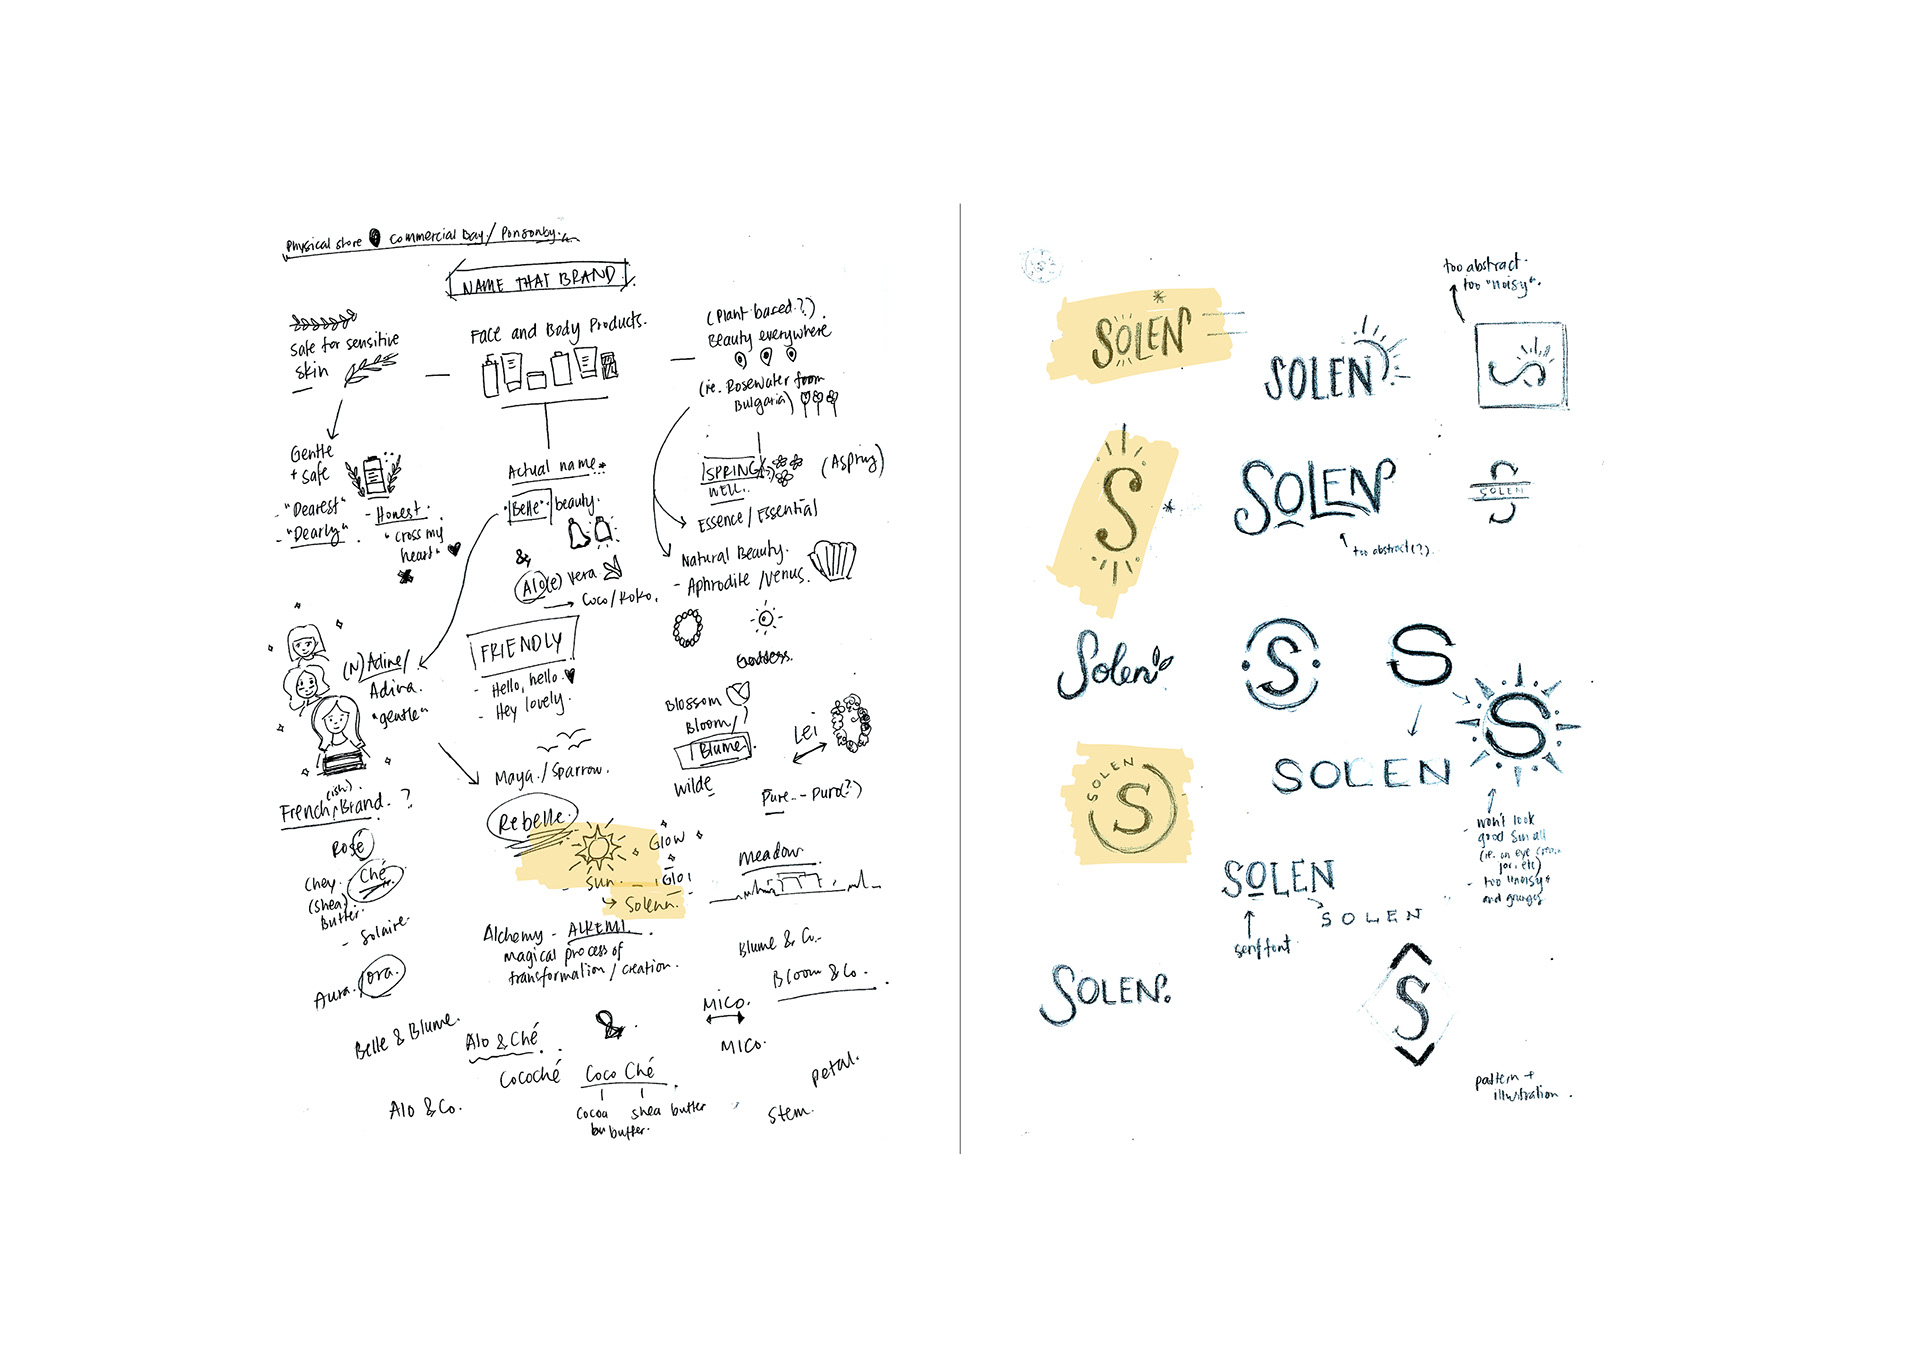 Physical store Commercial Bay / Ponsonby.
NAME THAT BRAND.
Safe for sensitive
skin
Face and Body Products.
(Plant based?)
Beauty everywhere
(ie. Rosewater from
Bulgaria)
Gentle
+ safe
- "Dearest"
- "Dearly"
- Honest.
"cross my
heart"
Actual name*
"Belle" beauty.
&
Alo(e) vera
→ Coco / Koko.
SPRING
WELL.
(Aspring)
Essence / Essential
Natural Beauty.
- Aphrodite / Venus.
Goddess.
(N) Adine /
Adina.
"gentle"
FRIENDLY
- Hello, hello.
- Hey lovely.
Maya. / Sparrow.
Rebelle.
Blossom
Bloom /
Blume.
Wilde
Lei
Pure -- Puro(?)
French(ish) Brand. ?
Rosé
Chey. Ché
(Shea)
Butter.
- Solaire.
Aura. ora.
Glow
Glo
- sun.
→ Solenn.
meadow
Alchemy - ALKEMI.
magical process of
transformation / creation.
Blume & Co.
Bloom & Co.
Belle & Blume.
Alo & Ché
Cocoché
&
Coco Ché
cocoa shea butter
butter.
Alo & Co.
MiCo.
MiCo.
petal.
stem.
SOLEN
SOLEN
too abstract.
too "noisy".
S
S
SOLEN
too abstract(?).
SOLEN
Solen
S
S
S
SOLEN
SOLEN
S
won't look
good small
(ie. on eye cream
jar, etc)
- too "noisy"
and grungy
SOLEN
serif font
SOLEN
SOLEN.
S
pattern +
illustration.